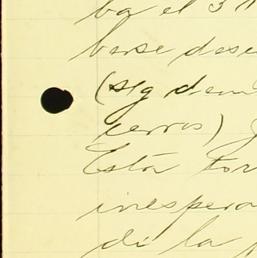 ba el 3
berse dese
(sig dem
cerros) y
Están tor
inespera
di la